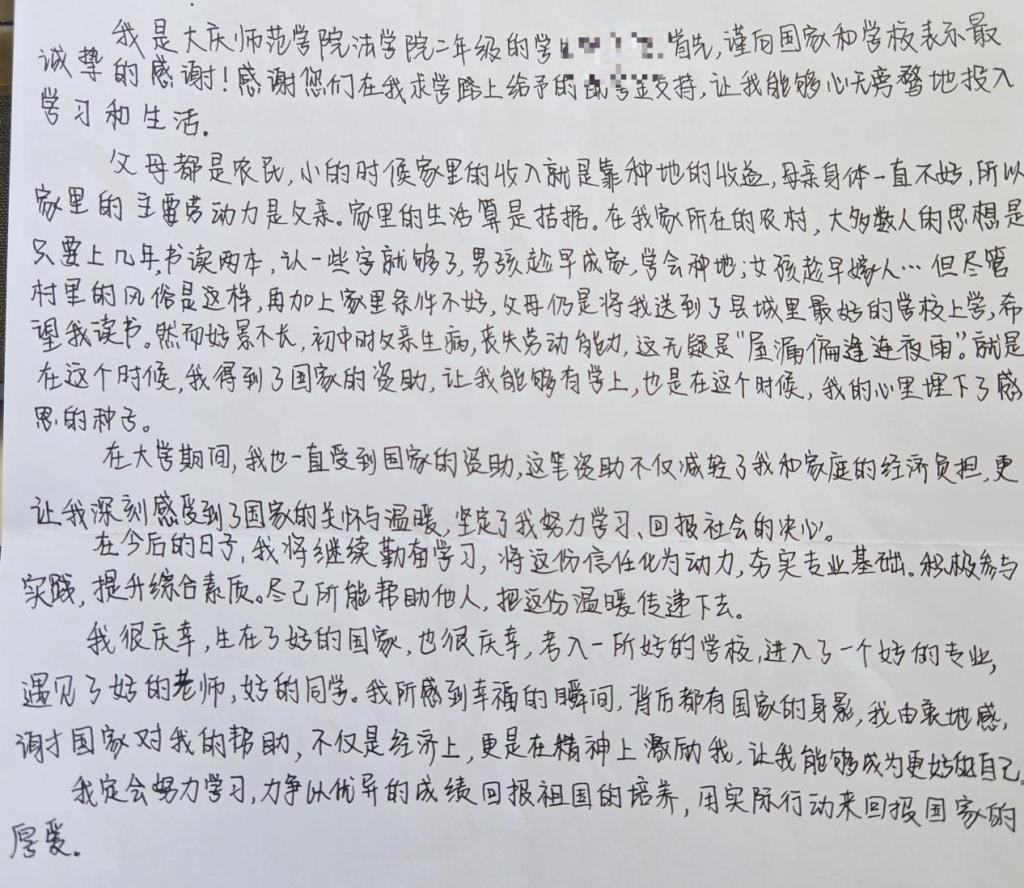 我是大庆师范学院法学院二年级的学 首先,谨向国家和学校表示最
诚挚的感谢!感谢您们在我求学路上给予的 支持,让我能够心无旁骛地投入
学习和生活.
父母都是农民,小的时候家里的收入就是靠种地的收益,母亲身体一直不好,所以
家里的主要劳动力是父亲。家里的生活算是拮据.在我家所在的农村,大多数人的思想是
只要上几年,书读两本,认一些字就够了,男孩趁早成家,学会种地;女孩趁早嫁人…但尽管
村里的风俗是这样,再加上家里条件不好,父母仍是将我送到了县城里最好的学校上学,希
望我读书。然而好景不长,初中时父亲生病,丧失劳动能力,这无疑是“屋漏偏逢连夜雨”。就是
在这个时候,我得到了国家的资助,让我能够有学上,也是在这个时候,我的心里埋下了感
恩的种子。
在大学期间,我也一直受到国家的资助,这笔资助不仅减轻了我和家庭的经济负担,更
让我深刻感受到了国家的关怀与温暖,坚定了我努力学习、回报社会的决心。
在今后的日子,我将继续勤奋学习,将这份信任化为动力,夯实专业基础.积极参与
实践,提升综合素质。尽己所能帮助他人,把这份温暖传递下去.
我很庆幸,生在了好的国家,也很庆幸,考入一所好的学校,进入了一个好的专业,
遇见了好的老师,好的同学。我所感到幸福的瞬间,背后都有国家的身影,我由衷地感,
谢 国家对我的帮助,不仅是经济上,更是在精神上激励我,让我能够成为更好的自己,
我定会努力学习,力争以优异的成绩回报祖国的培养,用实际行动来回报国家的
厚爱.